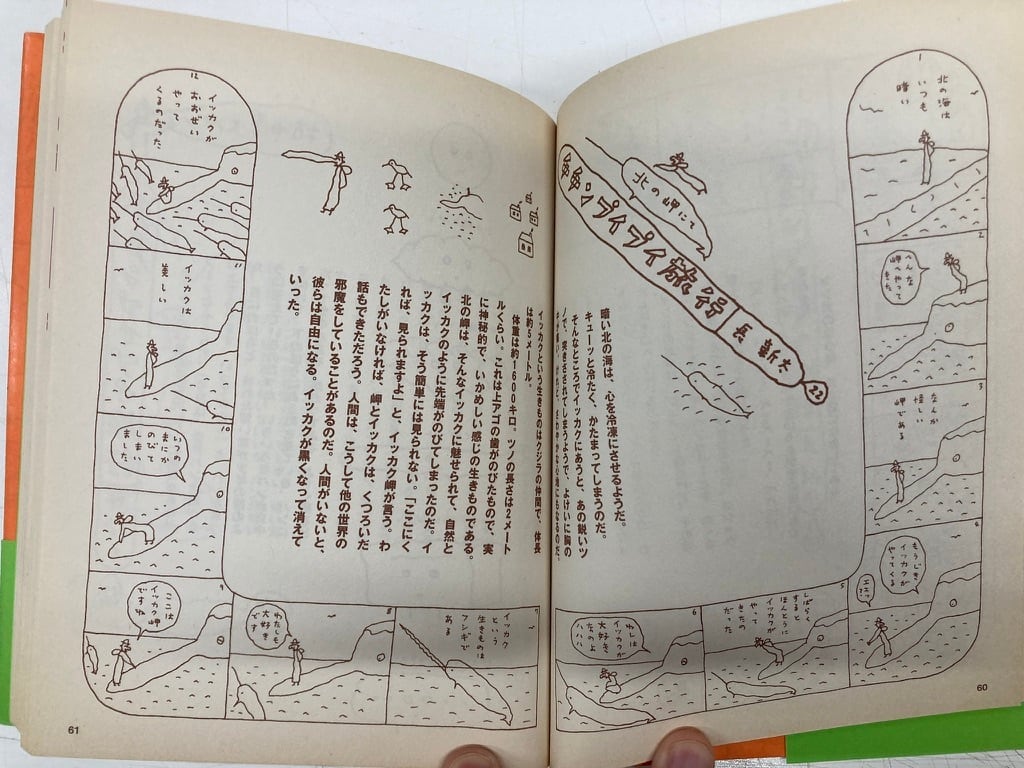 北の岬にて
プイプイ旅行
長新太
22
1
北の海は
いつも
暗い
2
へんな
岬へやって
きた
3
なんか
怪しい
岬である
4
もうじき
イッカクが
やってくる
5
しばらく
すると
ほんとに
イッカクが
やって
きたの
だった
6
わしは
イッカクが
大好き
なのよ
ハハハ
暗い北の海は、心を冷凍にさせるようだ。
キューッと冷たく、かたまってしまうのだ。
そんなところでイッカクにあうと、あの鋭いツ
ノで、突きさされてしまうようで、よけいに胸の
けれど、さわやかな心地にもなるのだ。
60
イッカクという生きものはクジラの仲間で、体長
は約5メートル。
体重は約1600キロ。ツノの長さは2メート
ルくらい。これは上アゴの歯がのびたもので、実
に神秘的で、いかめしい感じの生きものである。
北の岬は、そんなイッカクに魅せられて、自然と
イッカクのように先端がのびてしまったのだ。イ
ッカクは、そう簡単には見られない。「ここにく
れば、見られますよ」と、イッカク岬が言う。わ
たしがいなければ、岬とイッカクは、くつろいだ
話もできただろう。人間は、こうして他の世界の
邪魔をしていることがあるのだ。人間がいないと、
彼らは自由になる。イッカクが黒くなって消えて
いった。
7
イッカク
という
生きものは
フシギで
ある
8
わたしも
大好き
です
9
ここは
イッカク岬
ですね
10
いつの
まにか
のびて
しまい
ました
11
イッカクは
美しい
12
イッカクが
おおぜい
やって
くるのだった
61